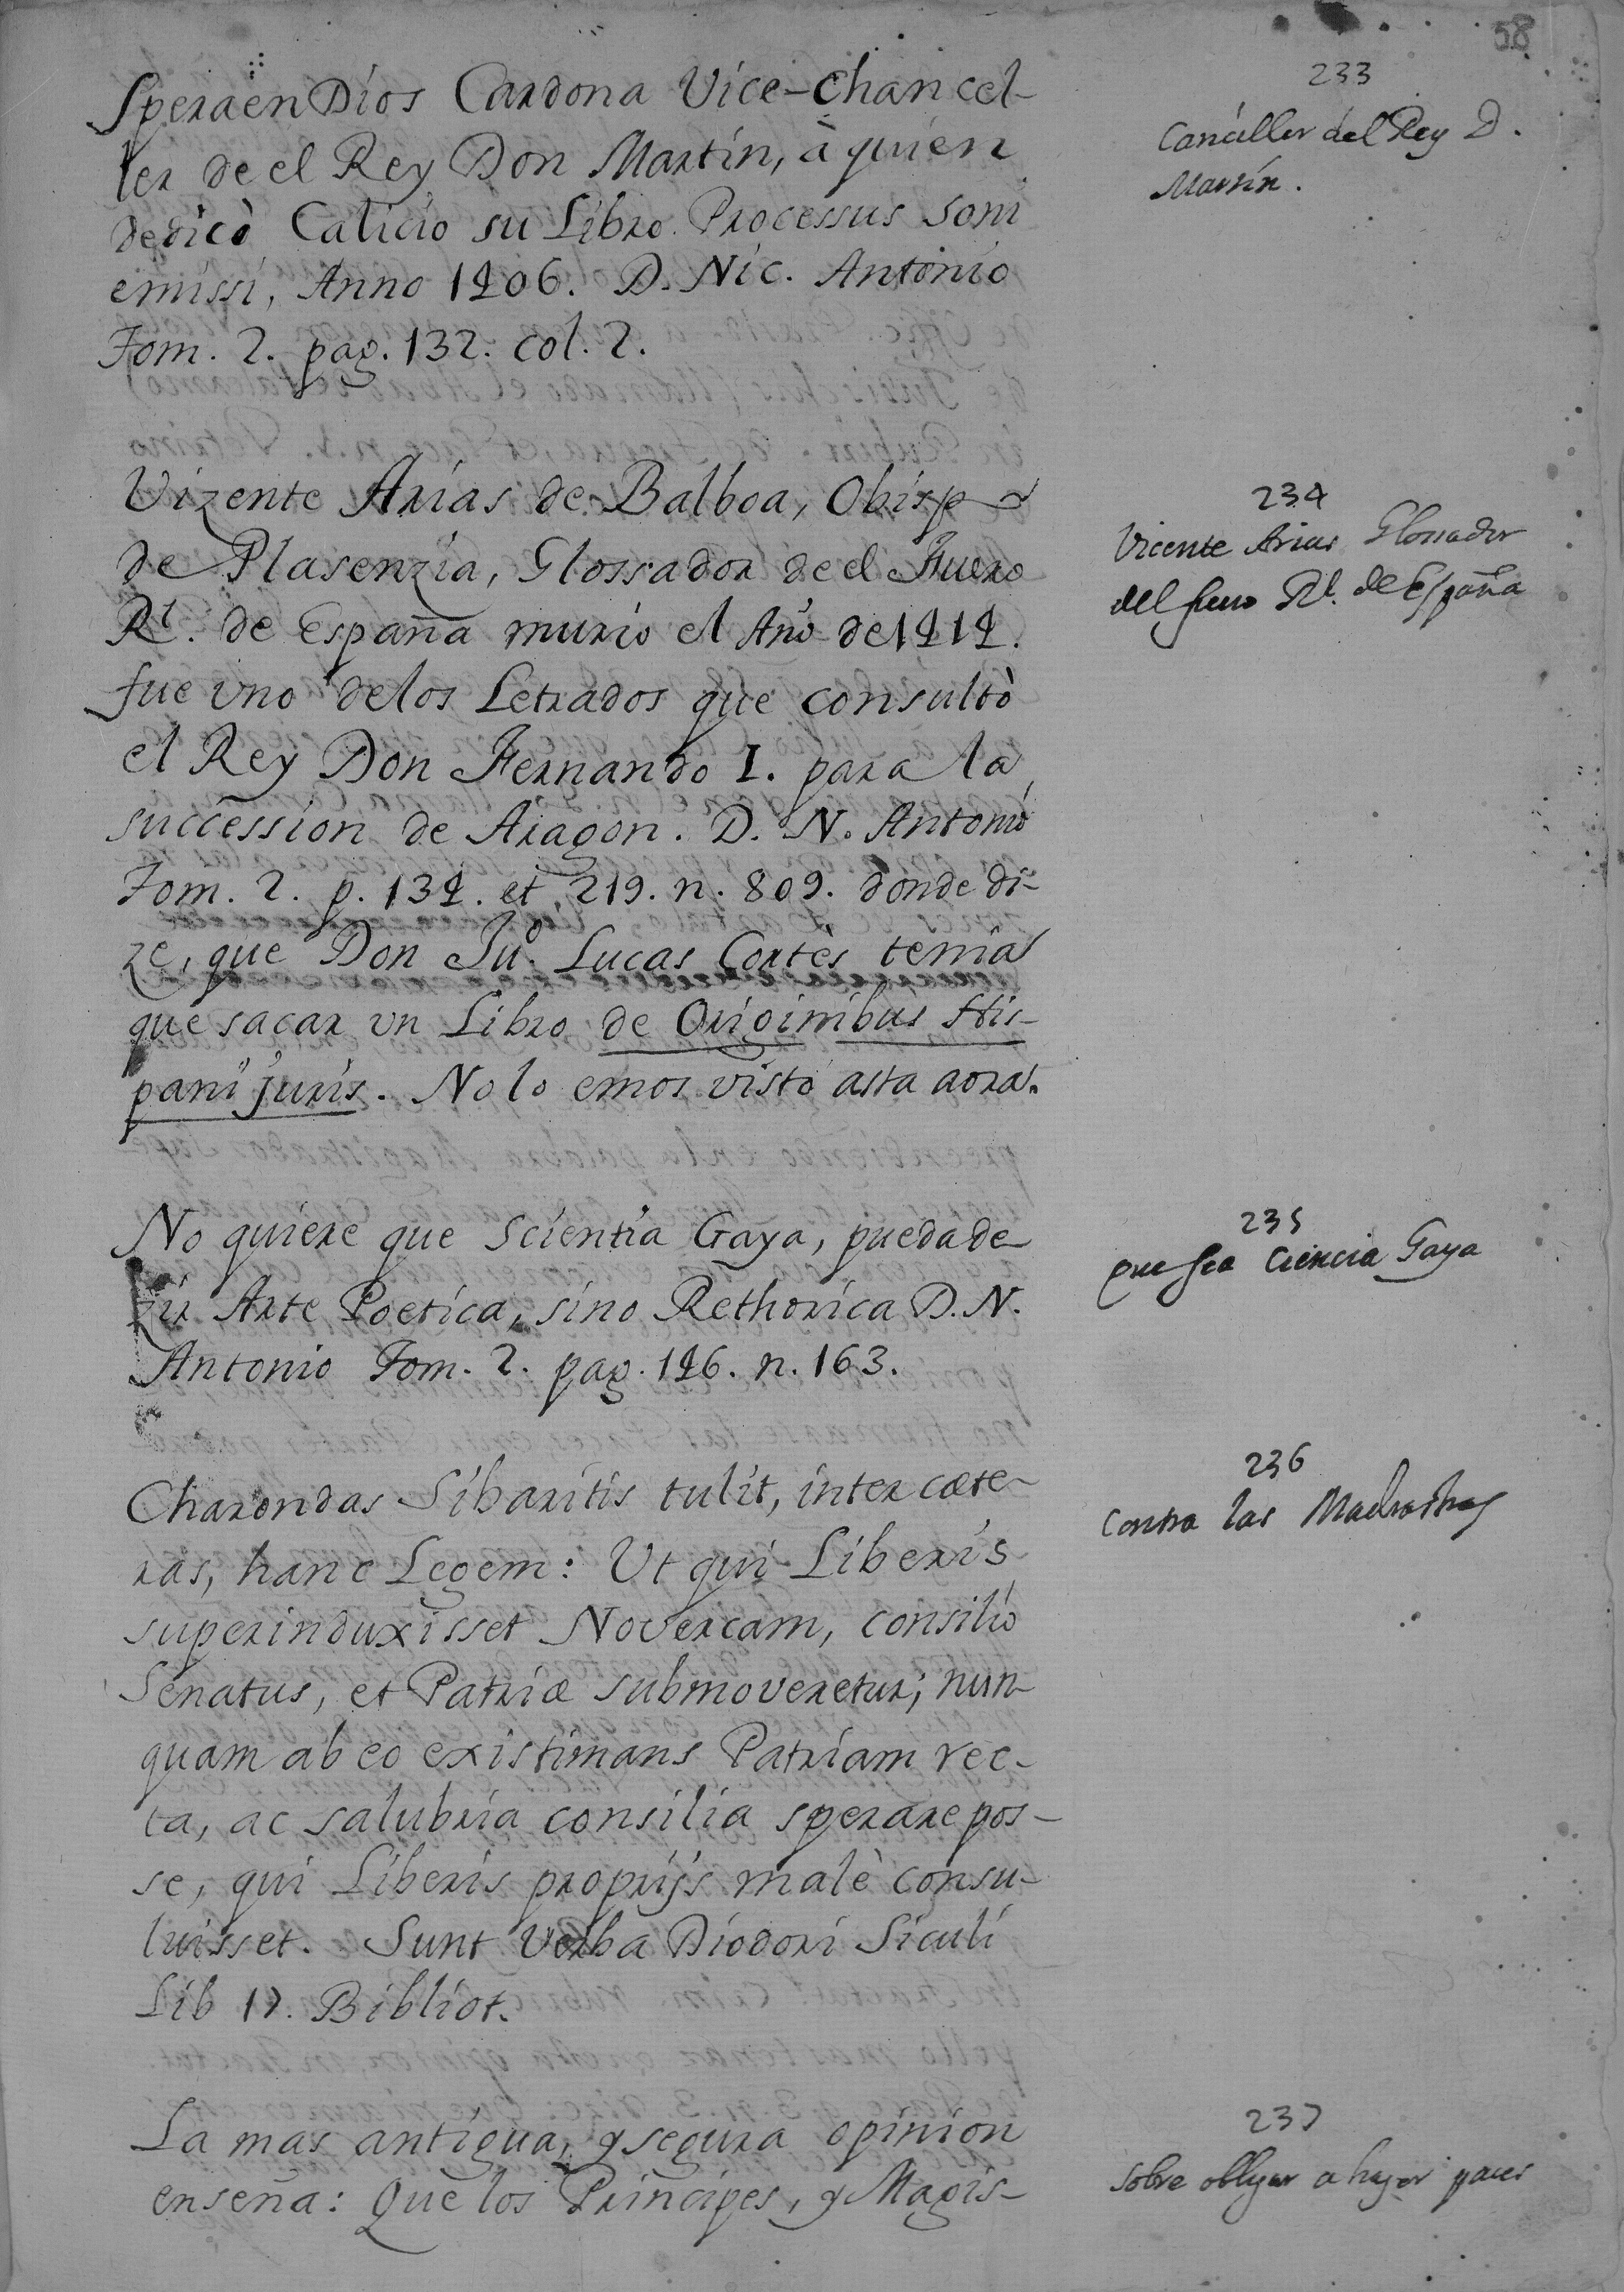 58
233
Canciller del Rey D.
Martin.
SperaenDios Cardona Vice-Chancel-
ler de el Rey Don Martin, à quien
dedicò Calicio su Libro Processus soni
emissi, Anno 1406. D. Nic. Antonio
Tom. 2. pag. 132. col. 2.
234
Vicente Arias Glossador
del fuero Rl. de España
Vizente Arias de Balboa, Obispo
de Plasenzia, Glossador de el Fuero
Rl. de España murio el Año de 1414.
fue vno delos Letrados que consultò
el Rey Don Fernando I. para la
succession de Aragon. D. N. Antonio
Tom. 2. p. 134. et 219. n. 809. donde di-
ze, que Don Juº. Lucas Cortès tenia
que sacar vn Libro de Originibus His-
panij juris. No lo emos visto asta aora.
235
que sea Ciencia Gaya
No quiere que Scientia Gaya, pueda de-
zir Arte Poetica, sino Rethorica D. N.
Antonio Tom. 2. pag. 146. n. 163.
236
Contra las Madrastras
Charondas Sibaritis tulit, inter cæte-
ras, hanc Legem: Ut qui Liberis
superinduxisset Novercam, consilio
Senatus, et Patriæ submoveretur; nun-
quam ab eo existimans Patriam rec-
ta, ac salubria consilia sperare pos-
se, qui Liberis proprijs malè consu-
luisset. Sunt Verba Diodori Siculi
Lib 17. Bibliot.
237
Sobre obligar a hazer paces
La mas antigua, y segura opinion
enseña: Que los Principes, y Magis-